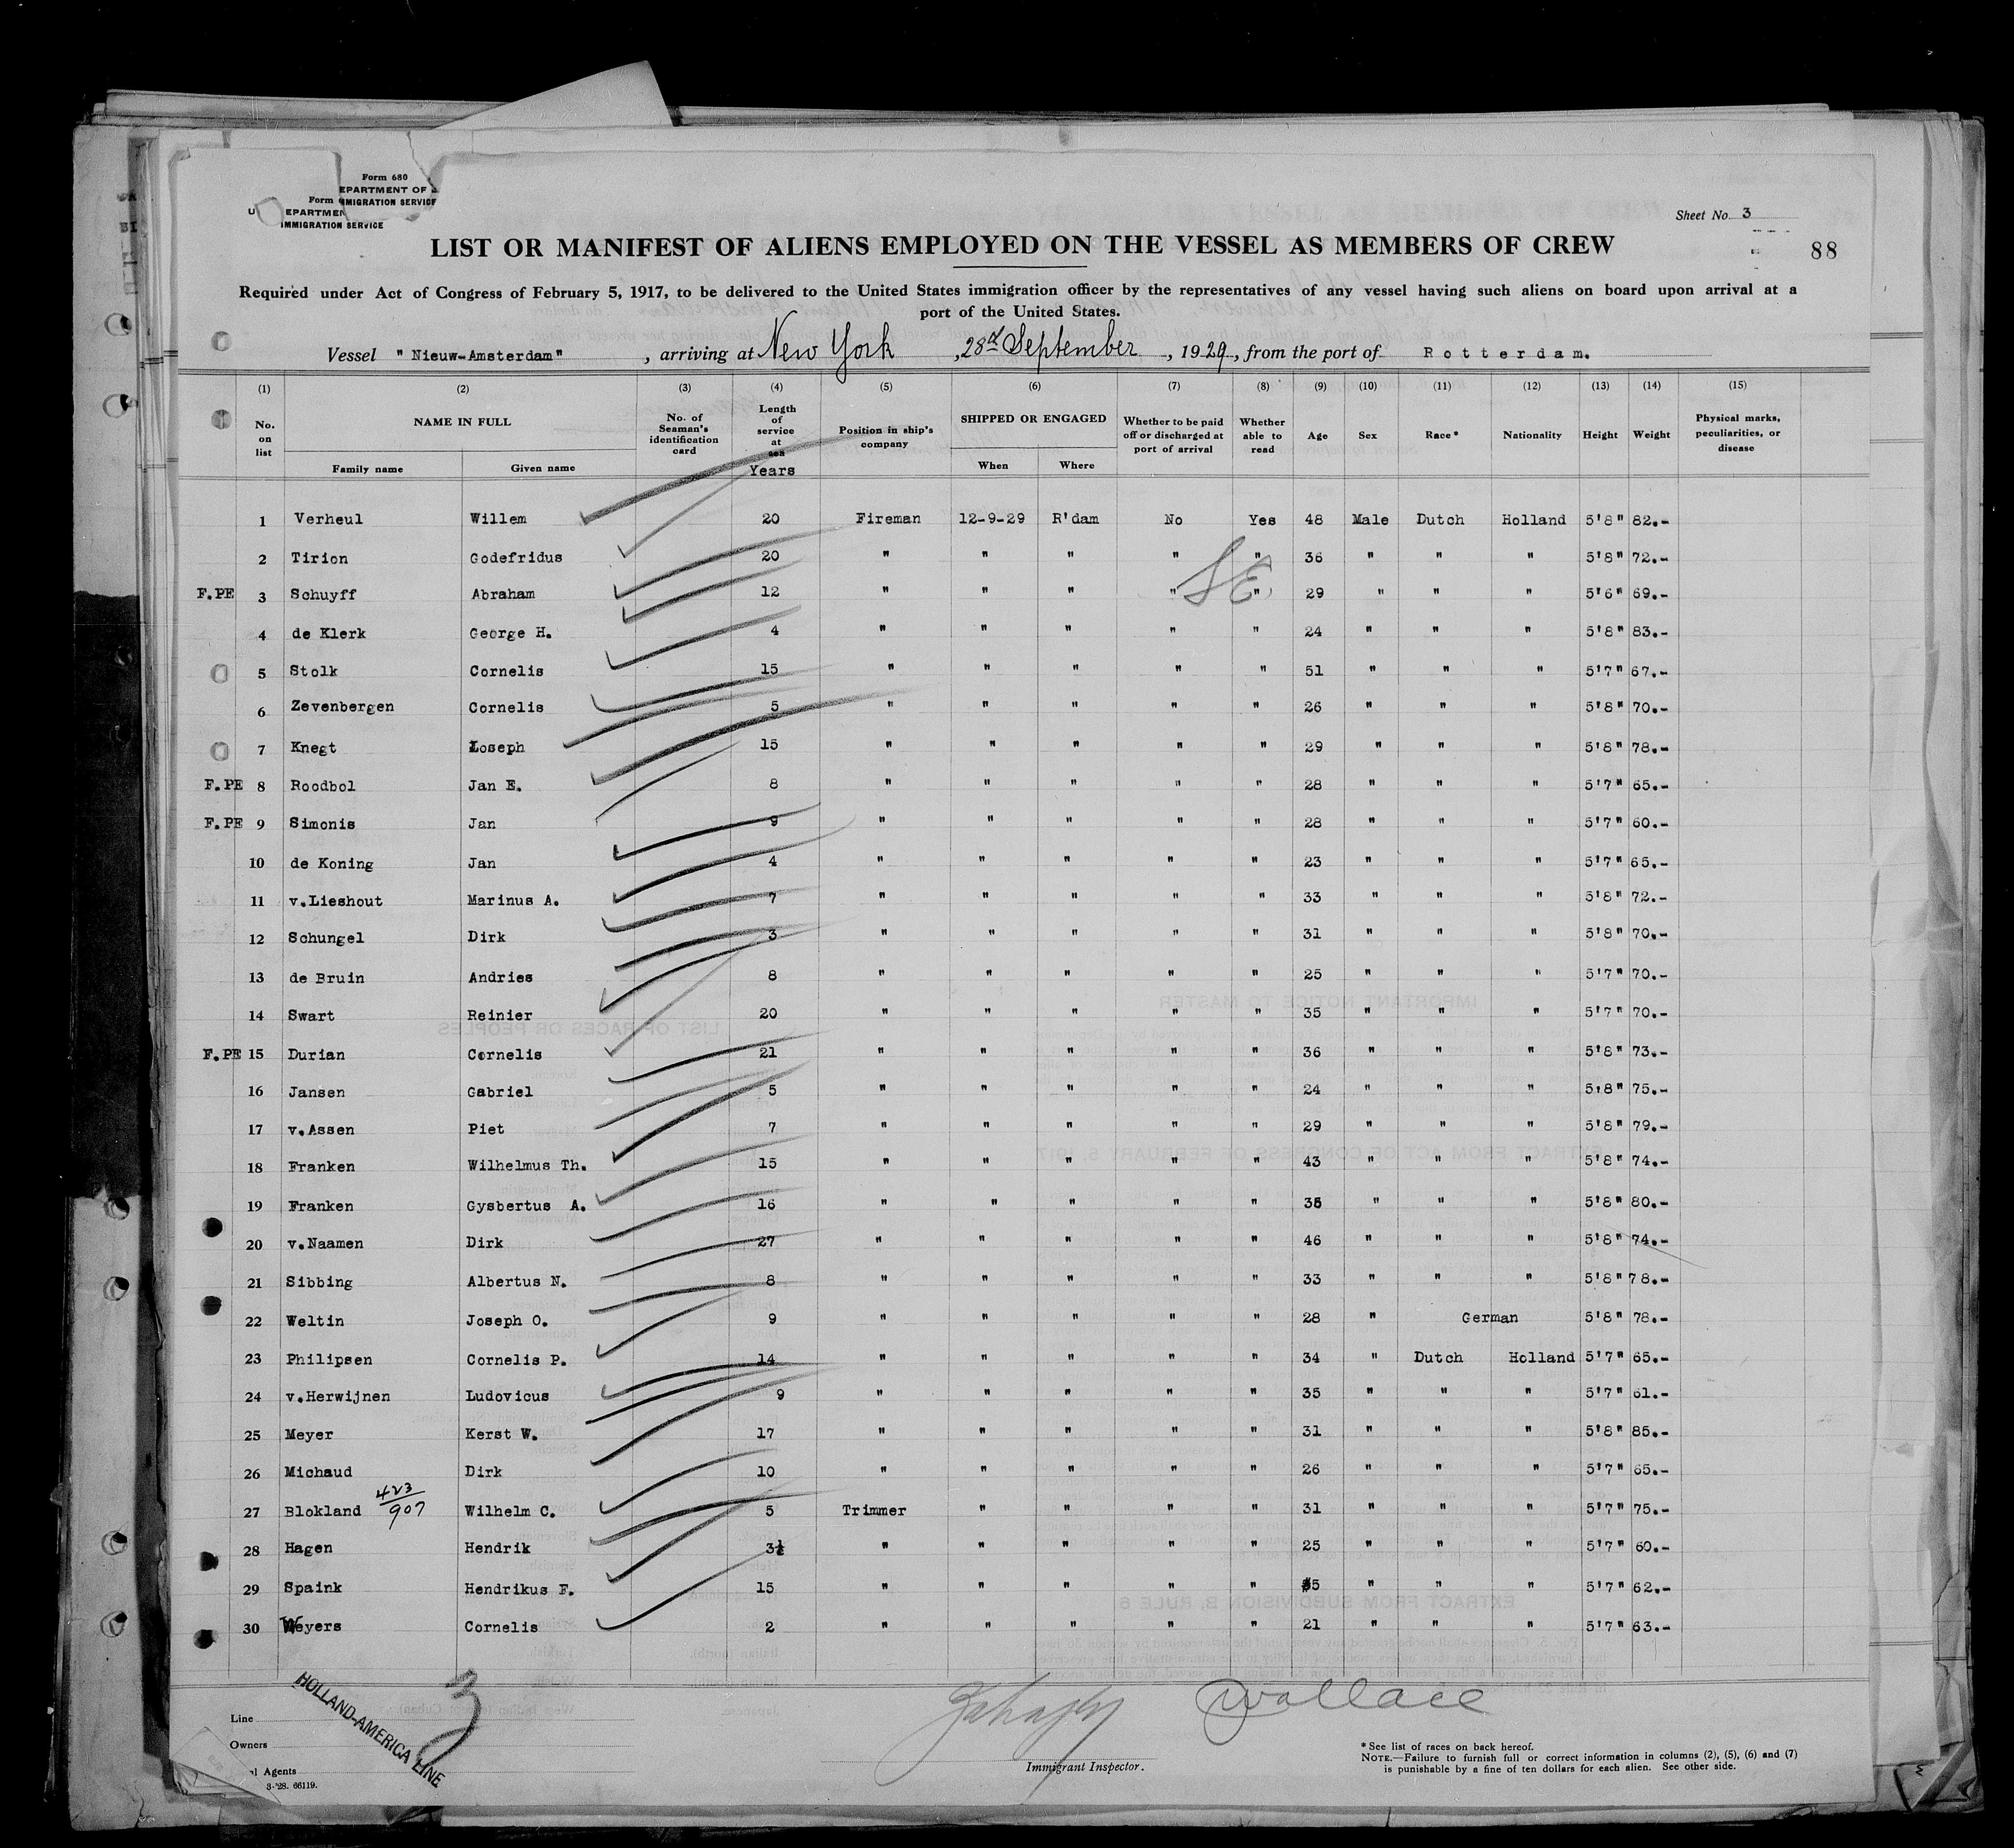 Form 680
EPARTMENT OF
Form MMIGRATION SERVICE
U EPARTMEN
IMMIGRATION SERVICE
Sheet No. 3
LIST OR MANIFEST OF ALIENS EMPLOYED ON THE VESSEL AS MEMBERS OF CREW
88
Required under Act of Congress of February 5, 1917, to be delivered to the United States immigration officer by the representatives of any vessel having such aliens on board upon arrival at a
port of the United States.
Vessel "Nieuw-Amsterdam", arriving at New York, 28th September, 1929, from the port of Rotterdam.
(1) (2) (3) (4) (5) (6) (7) (8) (9) (10) (11) (12) (13) (14) (15)
No. on list NAME IN FULL Family name Given name No. of Seaman's identification card Length of service at sea Years Position in ship's company SHIPPED OR ENGAGED When Where Whether to be paid off or discharged at port of arrival Whether able to read Age Sex Race* Nationality Height Weight Physical marks, peculiarities, or disease
1 Verheul Willem 20 Fireman 12-9-29 R'dam No Yes 48 Male Dutch Holland 5'8" 82.-
2 Tirion Godefridus 20 " " " " " 36 " " " 5'8" 72.-
SE
F.PE 3 Schuyff Abraham 12 " " " " " 29 " " " 5'6" 69.-
4 de Klerk George H. 4 " " " " " 24 " " " 5'8" 83.-
5 Stolk Cornelis 15 " " " " " 51 " " " 5'7" 67.-
6 Zevenbergen Cornelis 5 " " " " " 26 " " " 5'8" 70.-
7 Knegt Loseph 15 " " " " " 29 " " " 5'8" 78.-
F.PE 8 Roodbol Jan E. 8 " " " " " 28 " " " 5'7" 65.-
F.PE 9 Simonis Jan 9 " " " " " 28 " " " 5'7" 60.-
10 de Koning Jan 4 " " " " " 23 " " " 5'7" 65.-
11 v.Lieshout Marinus A. 7 " " " " " 33 " " " 5'8" 72.-
12 Schungel Dirk 3 " " " " " 31 " " " 5'8" 70.-
13 de Bruin Andries 8 " " " " " 25 " " " 5'7" 70.-
14 Swart Reinier 20 " " " " " 35 " " " 5'7" 70.-
F.PE 15 Durian Cornelis 21 " " " " " 36 " " " 5'8" 73.-
16 Jansen Gabriel 5 " " " " " 24 " " " 5'8" 75.-
17 v.Assen Piet 7 " " " " " 29 " " " 5'8" 79.-
18 Franken Wilhelmus Th. 15 " " " " " 43 " " " 5'8" 74.-
19 Franken Gysbertus A. 16 " " " " " 36 " " " 5'8" 80.-
20 v.Naamen Dirk 27 " " " " " 46 " " " 5'8" 74.-
21 Sibbing Albertus N. 8 " " " " " 33 " " " 5'8" 78.-
22 Weltin Joseph O. 9 " " " " " 28 " German 5'8" 78.-
23 Philipsen Cornelis P. 14 " " " " " 34 " Dutch Holland 5'7" 65.-
24 v.Herwijnen Ludovicus 9 " " " " " 35 " " " 5'7" 61.-
25 Meyer Kerst W. 17 " " " " " 31 " " " 5'8" 85.-
26 Michaud Dirk 10 " " " " " 26 " " " 5'7" 65.-
27 Blokland 423/907 Wilhelm C. 5 Trimmer " " " " 31 " " " 5'7" 75.-
28 Hagen Hendrik 3½ " " " " " 25 " " " 5'7" 60.-
29 Spaink Hendrikus F. 15 " " " " " 5 " " " 5'7" 62.-
30 Weyers Cornelis 2 " " " " " 21 " " " 5'7" 63.-
3
Wallace
HOLLAND-AMERICA LINE
Line
Owners
l Agents
3-'28. 66119.
Immigrant Inspector.
*See list of races on back hereof.
NOTE.—Failure to furnish full or correct information in columns (2), (5), (6) and (7)
is punishable by a fine of ten dollars for each alien. See other side.